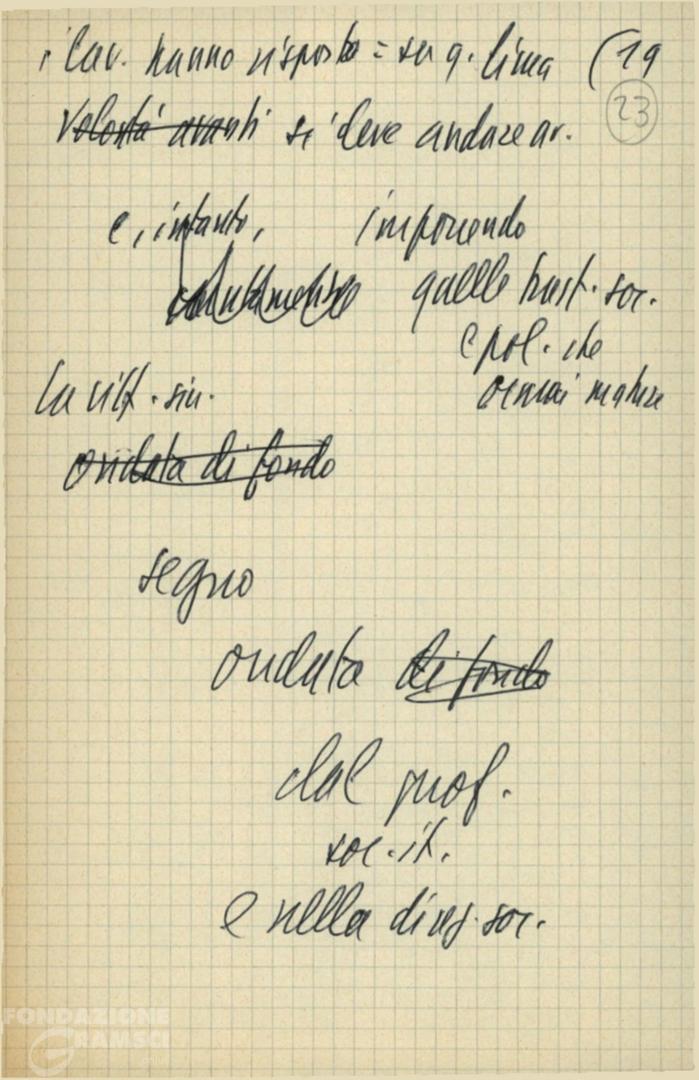 i lav. hanno risposto = su q. linea (19
23
Volontà avanti si deve andare av.
e, intanto, imponendo
quelle trasf. soc.
e pol. che
ormai mature
La vitt. sin.
ondata di fondo
segno
ondata di fondo
dal prof.
soc. it.
e nella direz. soc.
FONDAZIONE
GRAMSCI